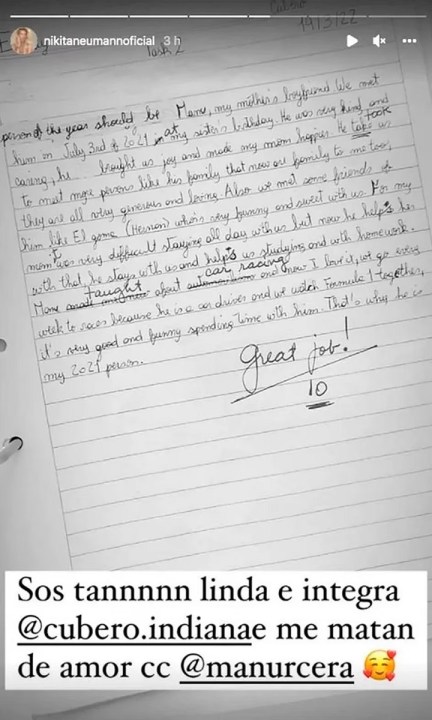 nikitaneumannofficial 3 h
14/3/22
Task 2
person of the year should be Manu, my mother's boyfriend. We met
him in July 3rd of 2021 at my sister's birthday. He was very kind and
caring, he brought us joy and made my mom happier. He took us
to meet more persons like his family that now are family to me too,
they are all very generous and loving. Also we met some friends of
him like El gome (Hernan) who is very funny and sweet with us. For my
mom it was very difficult staying all day with us but now he helps her
with that, he stays with us and helps us studying and with homework.
Manu taught about car racing and now I love it, we go every
week to races because he is a car driver and we watch Formula 1 together,
it's very good and funny spending time with him. That's why he is
my 2021 person.
Great job!
10
Sos tannnnn linda e integra
@cubero.indianae me matan
de amor cc @manurcera 🥰